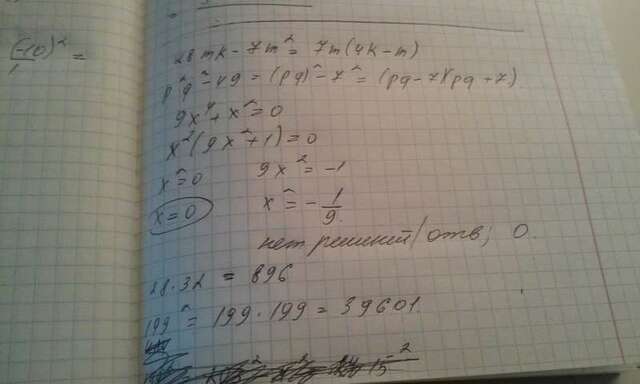 (-10)² =
1
28mk - 7m² = 7m(4k - m)
p²q² - 49 = (pq)² - 7² = (pq - 7)(pq + 7)
9x⁴ + x² = 0
x²(9x² + 1) = 0
x² = 0 9x² = -1
x = 0 x² = -1/9
нет решений / отв; 0.
28 · 32 = 896
199² = 199 · 199 = 39601
15⁻²